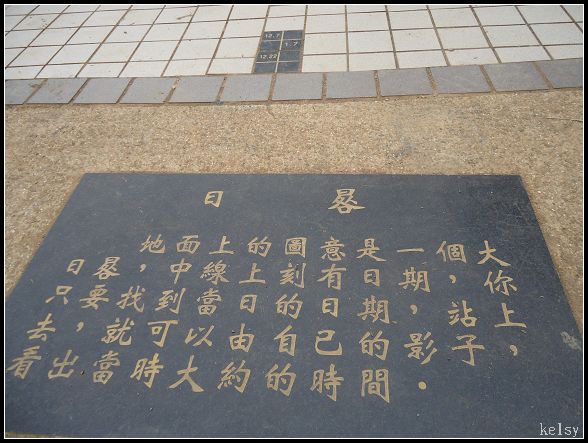 12.7
1.7
12.22
日晷
地面上的圖意是一個大
日晷，中線上刻有日期，你
只要找到當日的日期，站上
去，就可以由自己的影子，
看出當時大約的時間。
kelsy